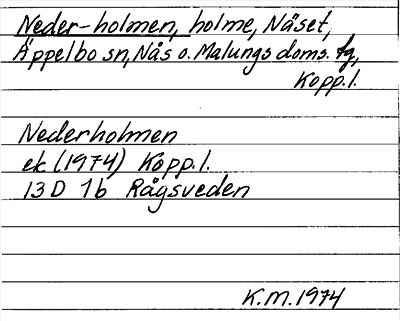 Neder-holmen, holme, Näset,
Äppelbo sn, Nås o. Malungs doms. tg,
Kopp.l.
Nederholmen
ek. (1974) Kopp.l.
13 D 1b Rågsveden
K.M. 1974